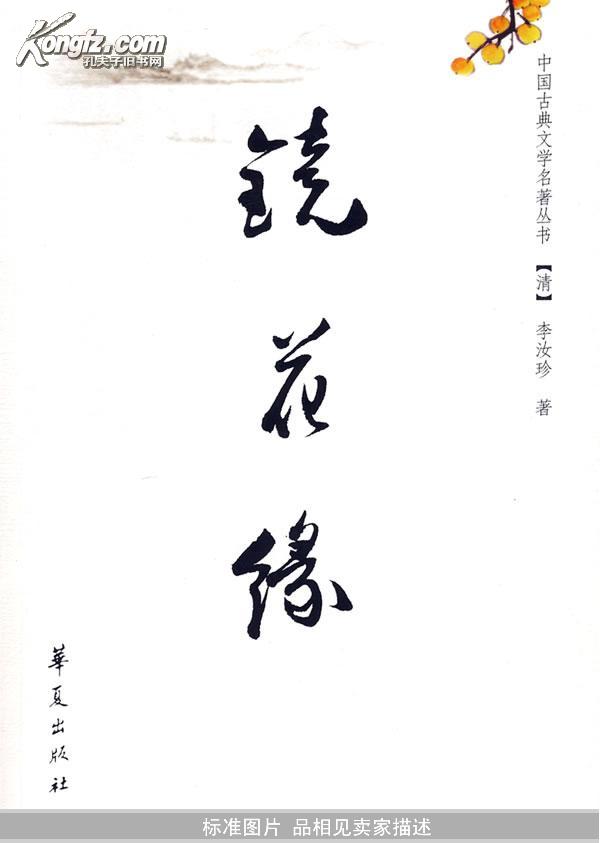 Kongfz.com
孔夫子旧书网
中国古典文学名著丛书 【清】 李汝珍 著
鏡花緣
華夏出版社
标准图片 品相见卖家描述